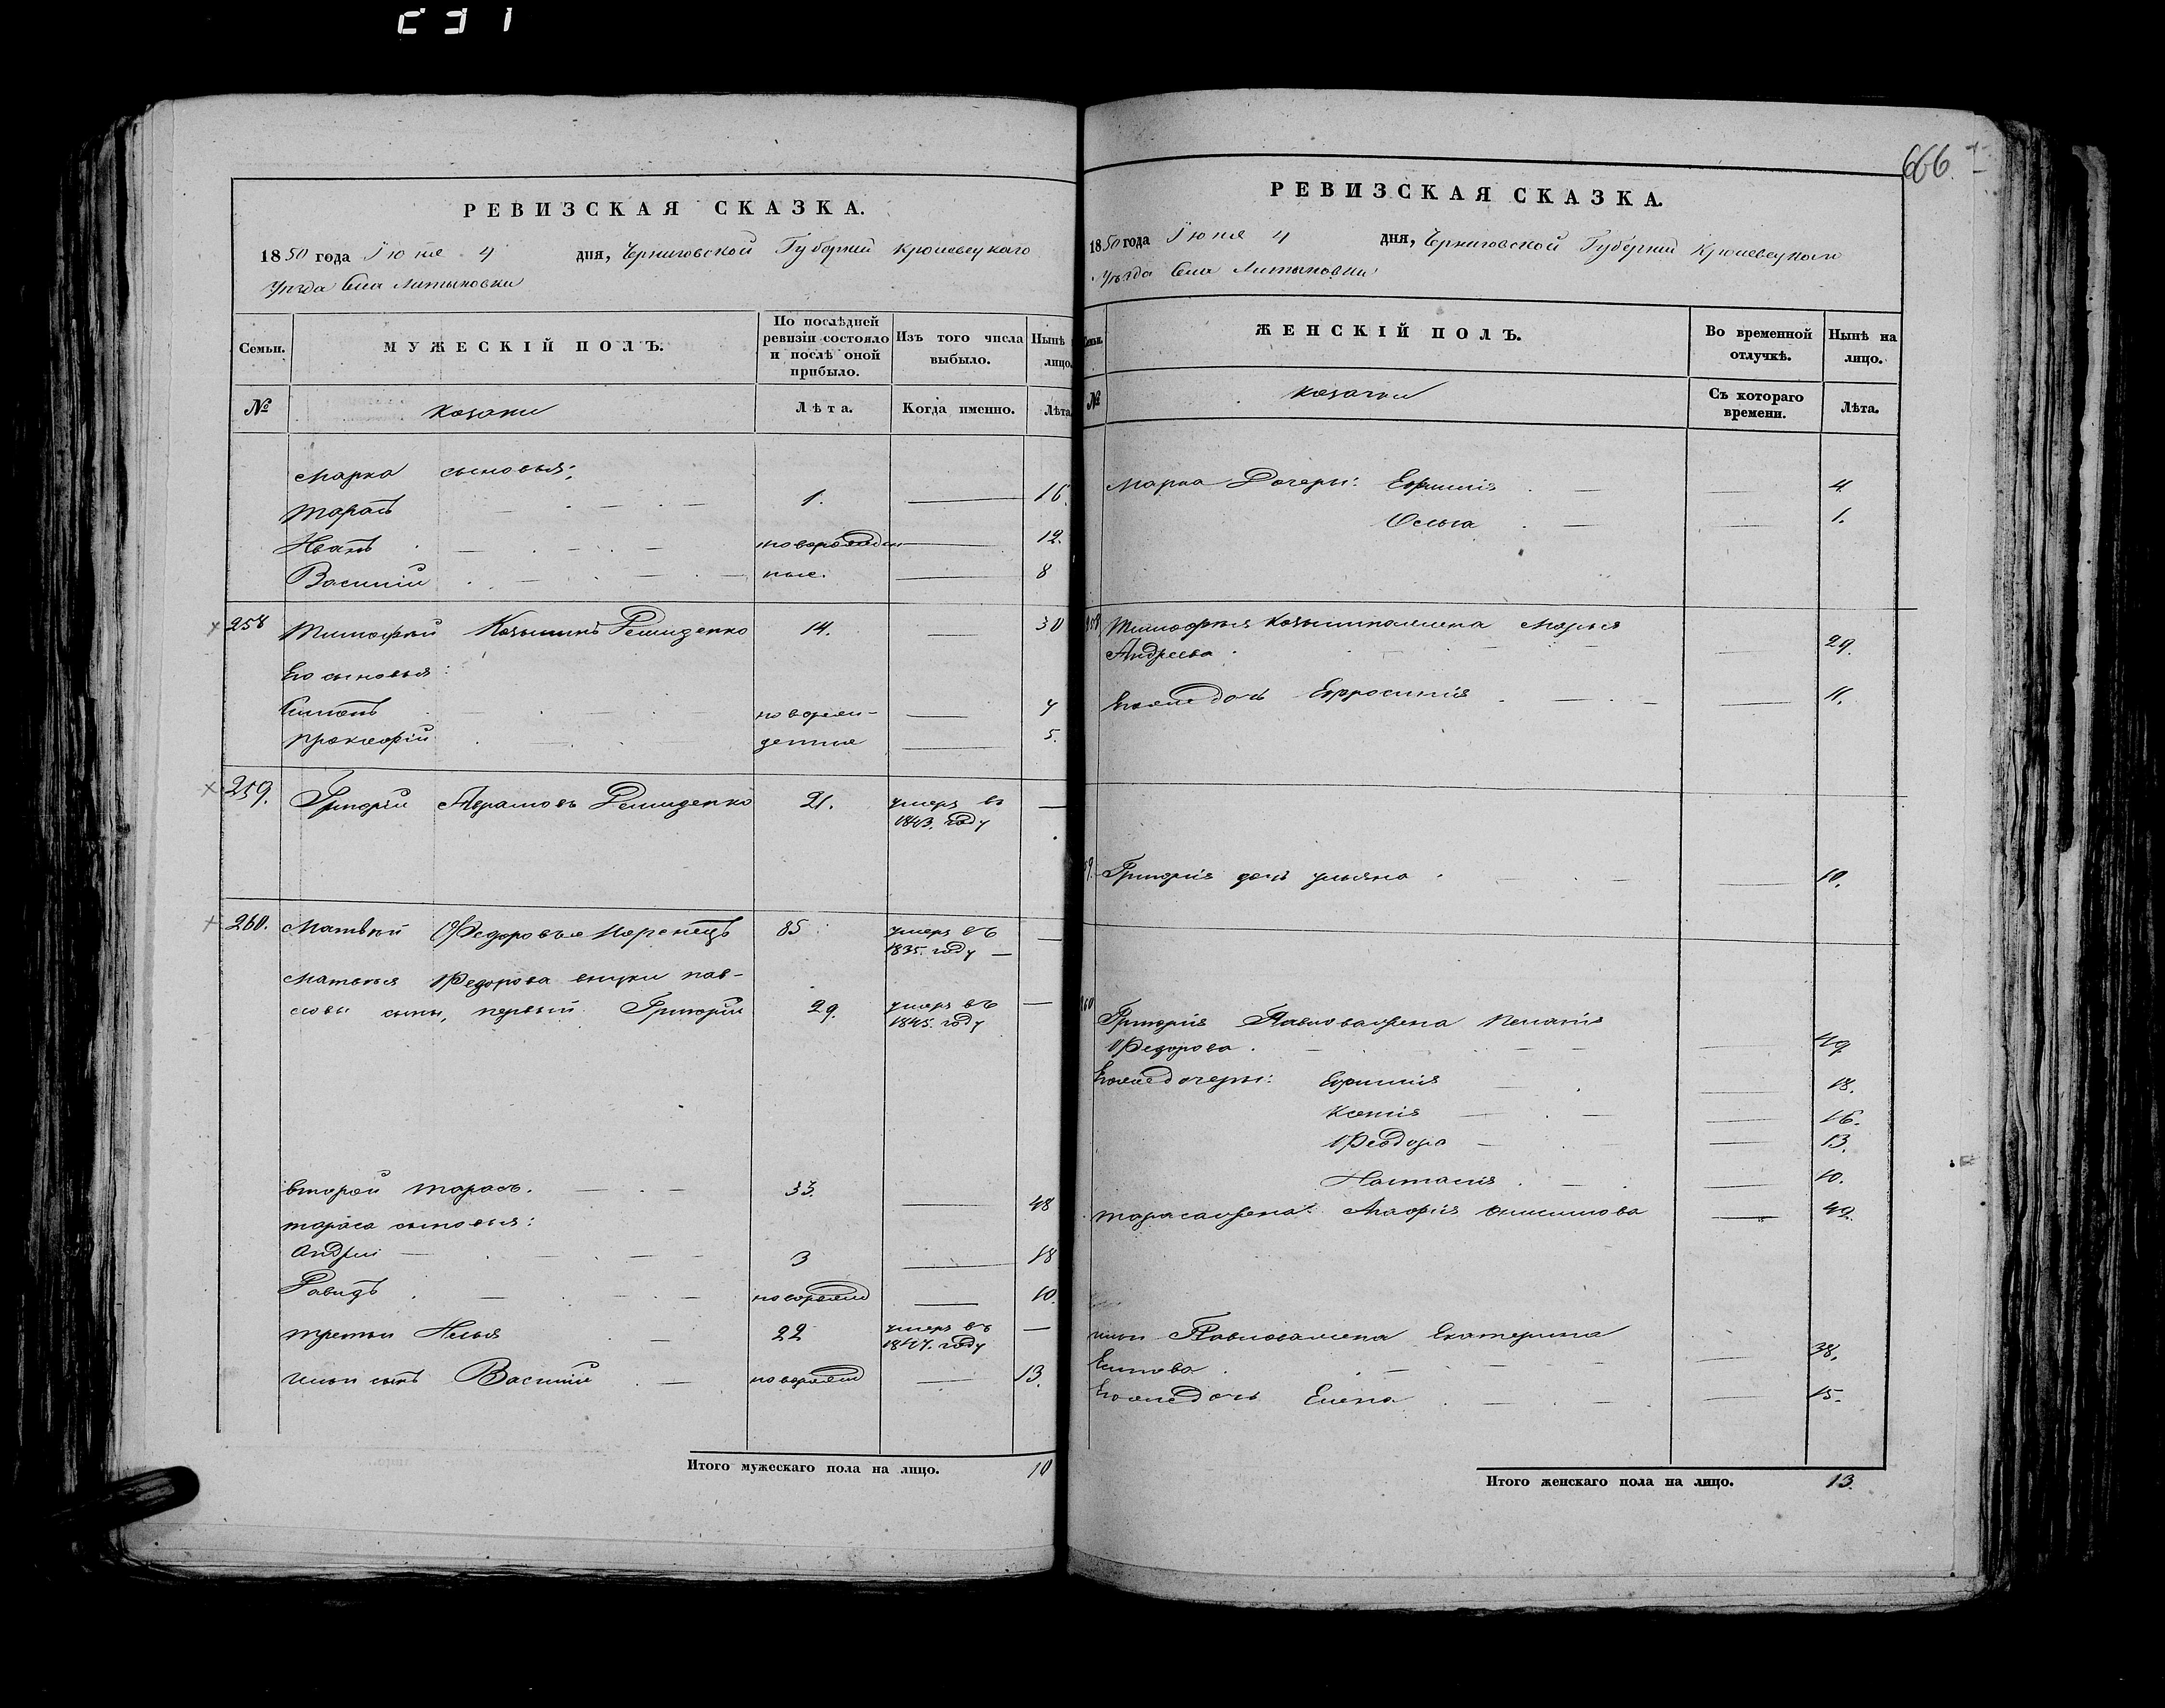 РЕВИЗСКАЯ СКАЗКА.
1850 года Іюне 4 дня, Черниговской Губерніи Кролевецкаго
Уѣзда Села Литвиновки
Семьи. МУЖЕСКІЙ ПОЛЪ. По послѣдней ревизіи состояло и послѣ оной прибыло. Изъ того числа выбыло. Нынѣ лицо.
№ Козаки Лѣта. Когда именно. Лѣта
Марка сыновья:
Тарасъ 1. 16.
Иванъ новорожден 12.
Василій ные. 8
258 Тимофей Козьминъ Демиденко 14. 30
Его сыновья:
новорож- 7
Прокофій денные 5.
259. Григорій Абрамовъ Демиденко 21. умеръ въ
1843. году
260. Матвѣй Федоровъ 85 умеръ въ
1835. году
Матвѣя Федорова внуки Пав-
ловы сыны, первый Григорій 29. умеръ въ
1845. году
второй Тарасъ. 33. 48
Тараса сыновья:
Андрей 3 18
Давидъ новорожд 10.
третій Илья 22 умеръ въ
1847. году
Ильи сынъ Василій новорожд 13.
Итого мужескаго пола на лицо. 10
666
РЕВИЗСКАЯ СКАЗКА.
1850 года Іюне 4 дня, Черниговской Губерніи Кролевецкаго
Уѣзда Села Литвиновки
Семьи. ЖЕНСКІЙ ПОЛЪ. Во временной отлучкѣ. Нынѣ на лицо.
№ Козачки Съ котораго времени. Лѣта.
Марка Дочери: Ефимія 4.
1.
258 Тимофея Козьмина жена Марья
Андреева 29.
Его же дочь Ефросинія 11.
59. Григорія дочь Ульяна 10.
260 Григорія Павлова жена Пелагія
Федорова 49
Его же дочери: Ефимія 18.
Ксенія 16.
Феодора 13.
Настасія 10.
Тараса жена Марфія Онисимова 42.
Ильи Павлова жена Екатерина
38.
Его же дочь Елена 15.
Итого женскаго пола на лицо. 13.